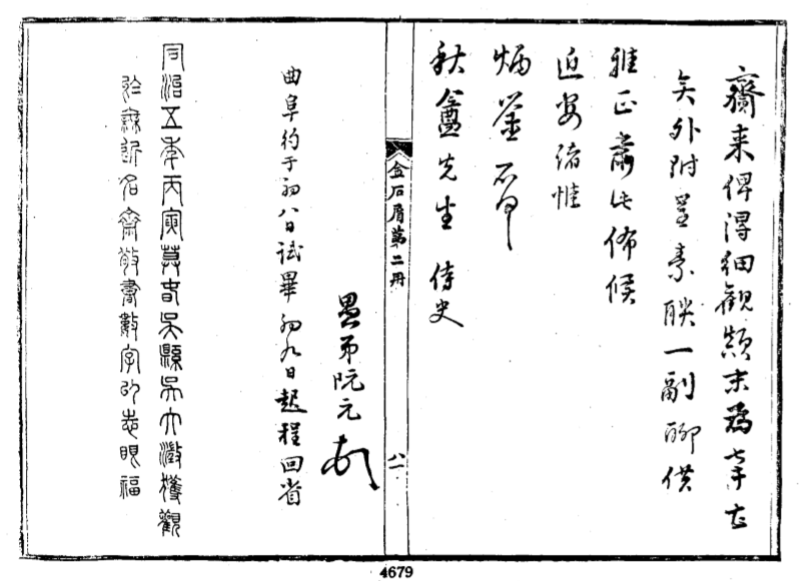 齎来俾得細觀顛末為幸
矣外附呈素聯一副聊供
雅正肅此佈候
近安諸惟
炳鑒不
秋盦先生 侍史
金石屑第二冊
八一
愚弟阮元頓
曲阜約于初八日試畢初九日起程回省
同治五年丙寅莫春吳縣吳大澂獲觀
於 所名齋敬書數字以志眼福
4679